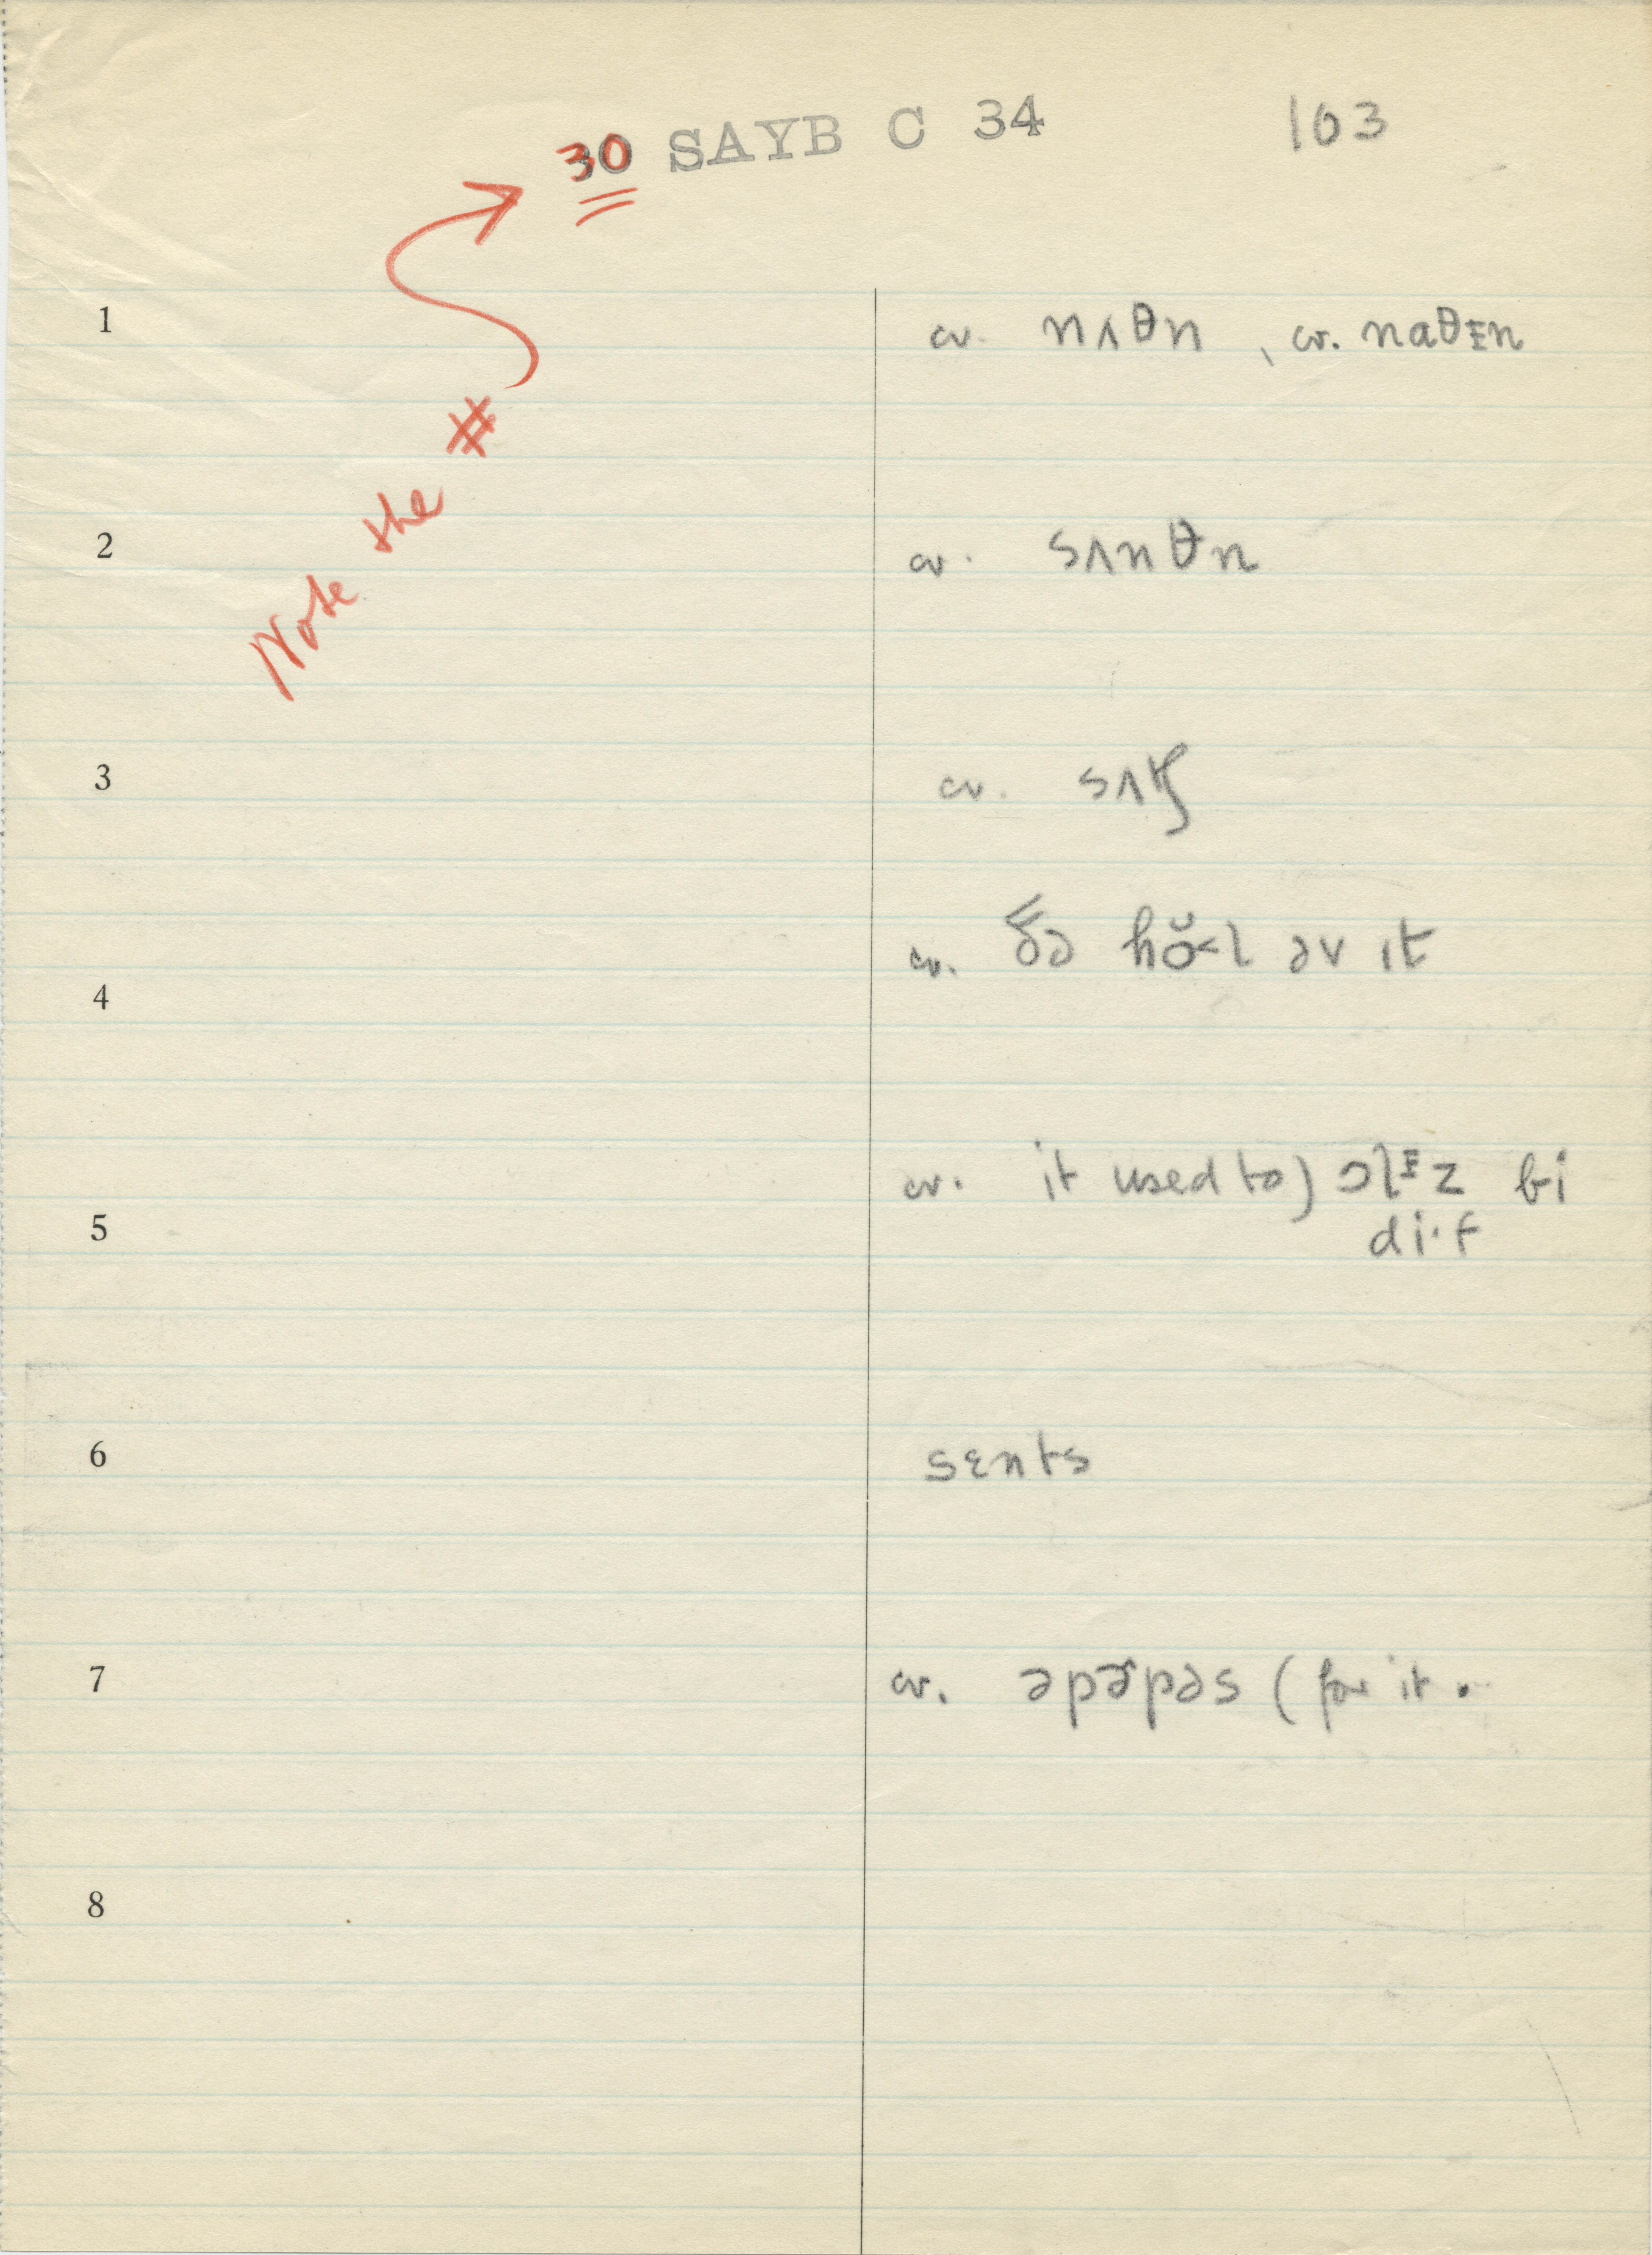 30 SAYB C 34 103
Note the #
1 cv. nʌθn, cv. naθɪn
2 cv. sʌnθn
3 cv. sʌtʃ
4 cv. ðə hŏ˂l əv it
5 cv. it used to) ɔlɪz bi
di·f
6 sɛnts
7 cv. əpɚpəs (for it.
8